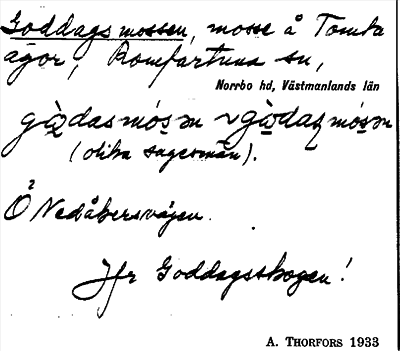 Goddagsmossen, mosse å Tomta
ägor, Romfartuna sn,
Norrbo hd, Västmanlands län
(olika sagesmän).
Ö Nedåkersvägen.
Jfr Goddagsskogen!
A. THORFORS 1933